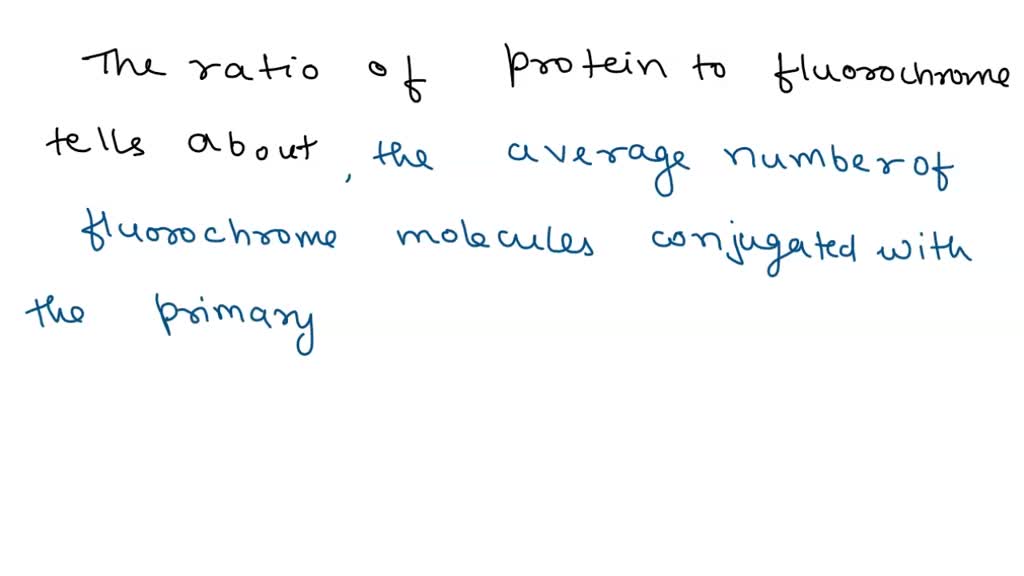 The ratio of protein to fluorochrome
tells about, the average number of
fluorochrome molecules conjugated with
the primary